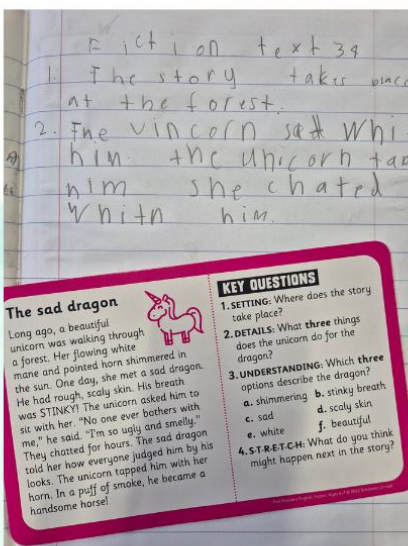 Fiction text 39
1. The story takes place
at the forest.
2. The vincorn sat Whi
him the unicorn tap
him she chated
Whith him.
The sad dragon
Long ago, a beautiful
unicorn was walking through
a forest. Her flowing white
mane and pointed horn shimmered in
the sun. One day, she met a sad dragon.
He had rough, scaly skin. His breath
was STINKY! The unicorn asked him to
sit with her. “No one ever bothers with
me,” he said. “I’m so ugly and smelly.”
They chatted for hours. The sad dragon
told her how everyone judged him by his
looks. The unicorn tapped him with her
horn. In a puff of smoke, he became a
handsome horse!
KEY QUESTIONS
1. SETTING: Where does the story
take place?
2. DETAILS: What three things
does the unicorn do for the
dragon?
3. UNDERSTANDING: Which three
options describe the dragon?
a. shimmering b. stinky breath
c. sad d. scaly skin
e. white f. beautiful
4. S-T-R-E-T-C-H: What do you think
might happen next in the story?